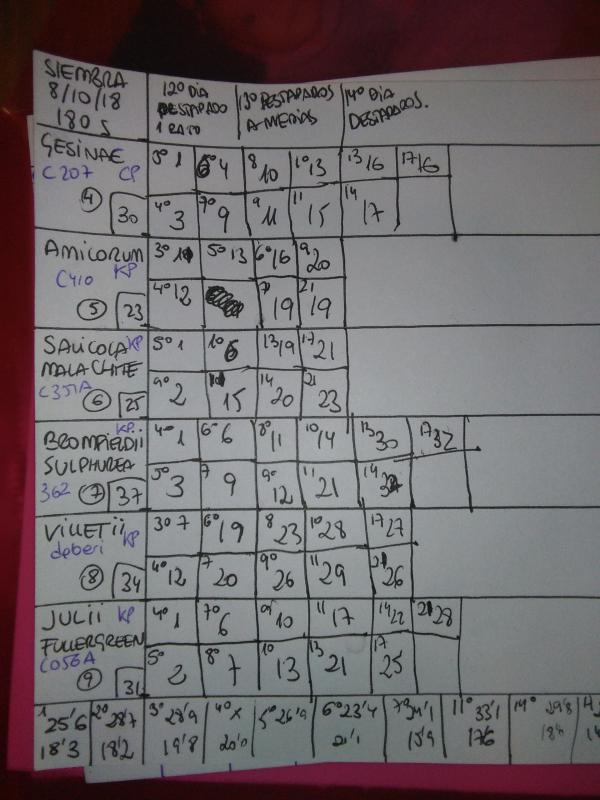 SIEMBRA
8/10/18
180 s
12º DÍA
DESTAPADO
1 RATO
13º DESTAPADOS
A MEDIAS
14º DIA
DESTAPADOS.
GESINAE
C207 CP
4 30
5º 1 6º 4 8 10 10 13 13 16 17 16
4º 3 7º 9 9 11 11 15 14 17
AMICORUM
C410 KP
5 23
3º 1 5º 13 6º 16 9 20
4º 12 7 19 21 19
SALICOLA KP
MALACHITE
C351A
6 25
5º 1 10 6 13 19 17 21
9º 2 15 14 20 21 23
KP
BROMFIELDII
SULPHUREA
362 7 37
4º 1 6º 6 8º 11 10 14 13 30 17 32
5º 3 7 9 9º 12 11 21 14
VILLETII
deberi KP
8 34
3º 7 6º 19 8 23 10 28 17 27
4º 12 7 20 9º 26 11 29 21 26
JULII KP
FULLERGREEN
C056A
9 31
4º 1 7º 6 9º 10 11 17 14 22 21 28
5º 2 8º 7 10 13 13 21 17 25
1 25'6 2º 28'7 3º 28'9 4º x 5º 26'9 6º 23'4 7º 24'1 11º 33'1 14º 29'8
18'3 18'2 19'8 20'0 21'1 15'9 17'6